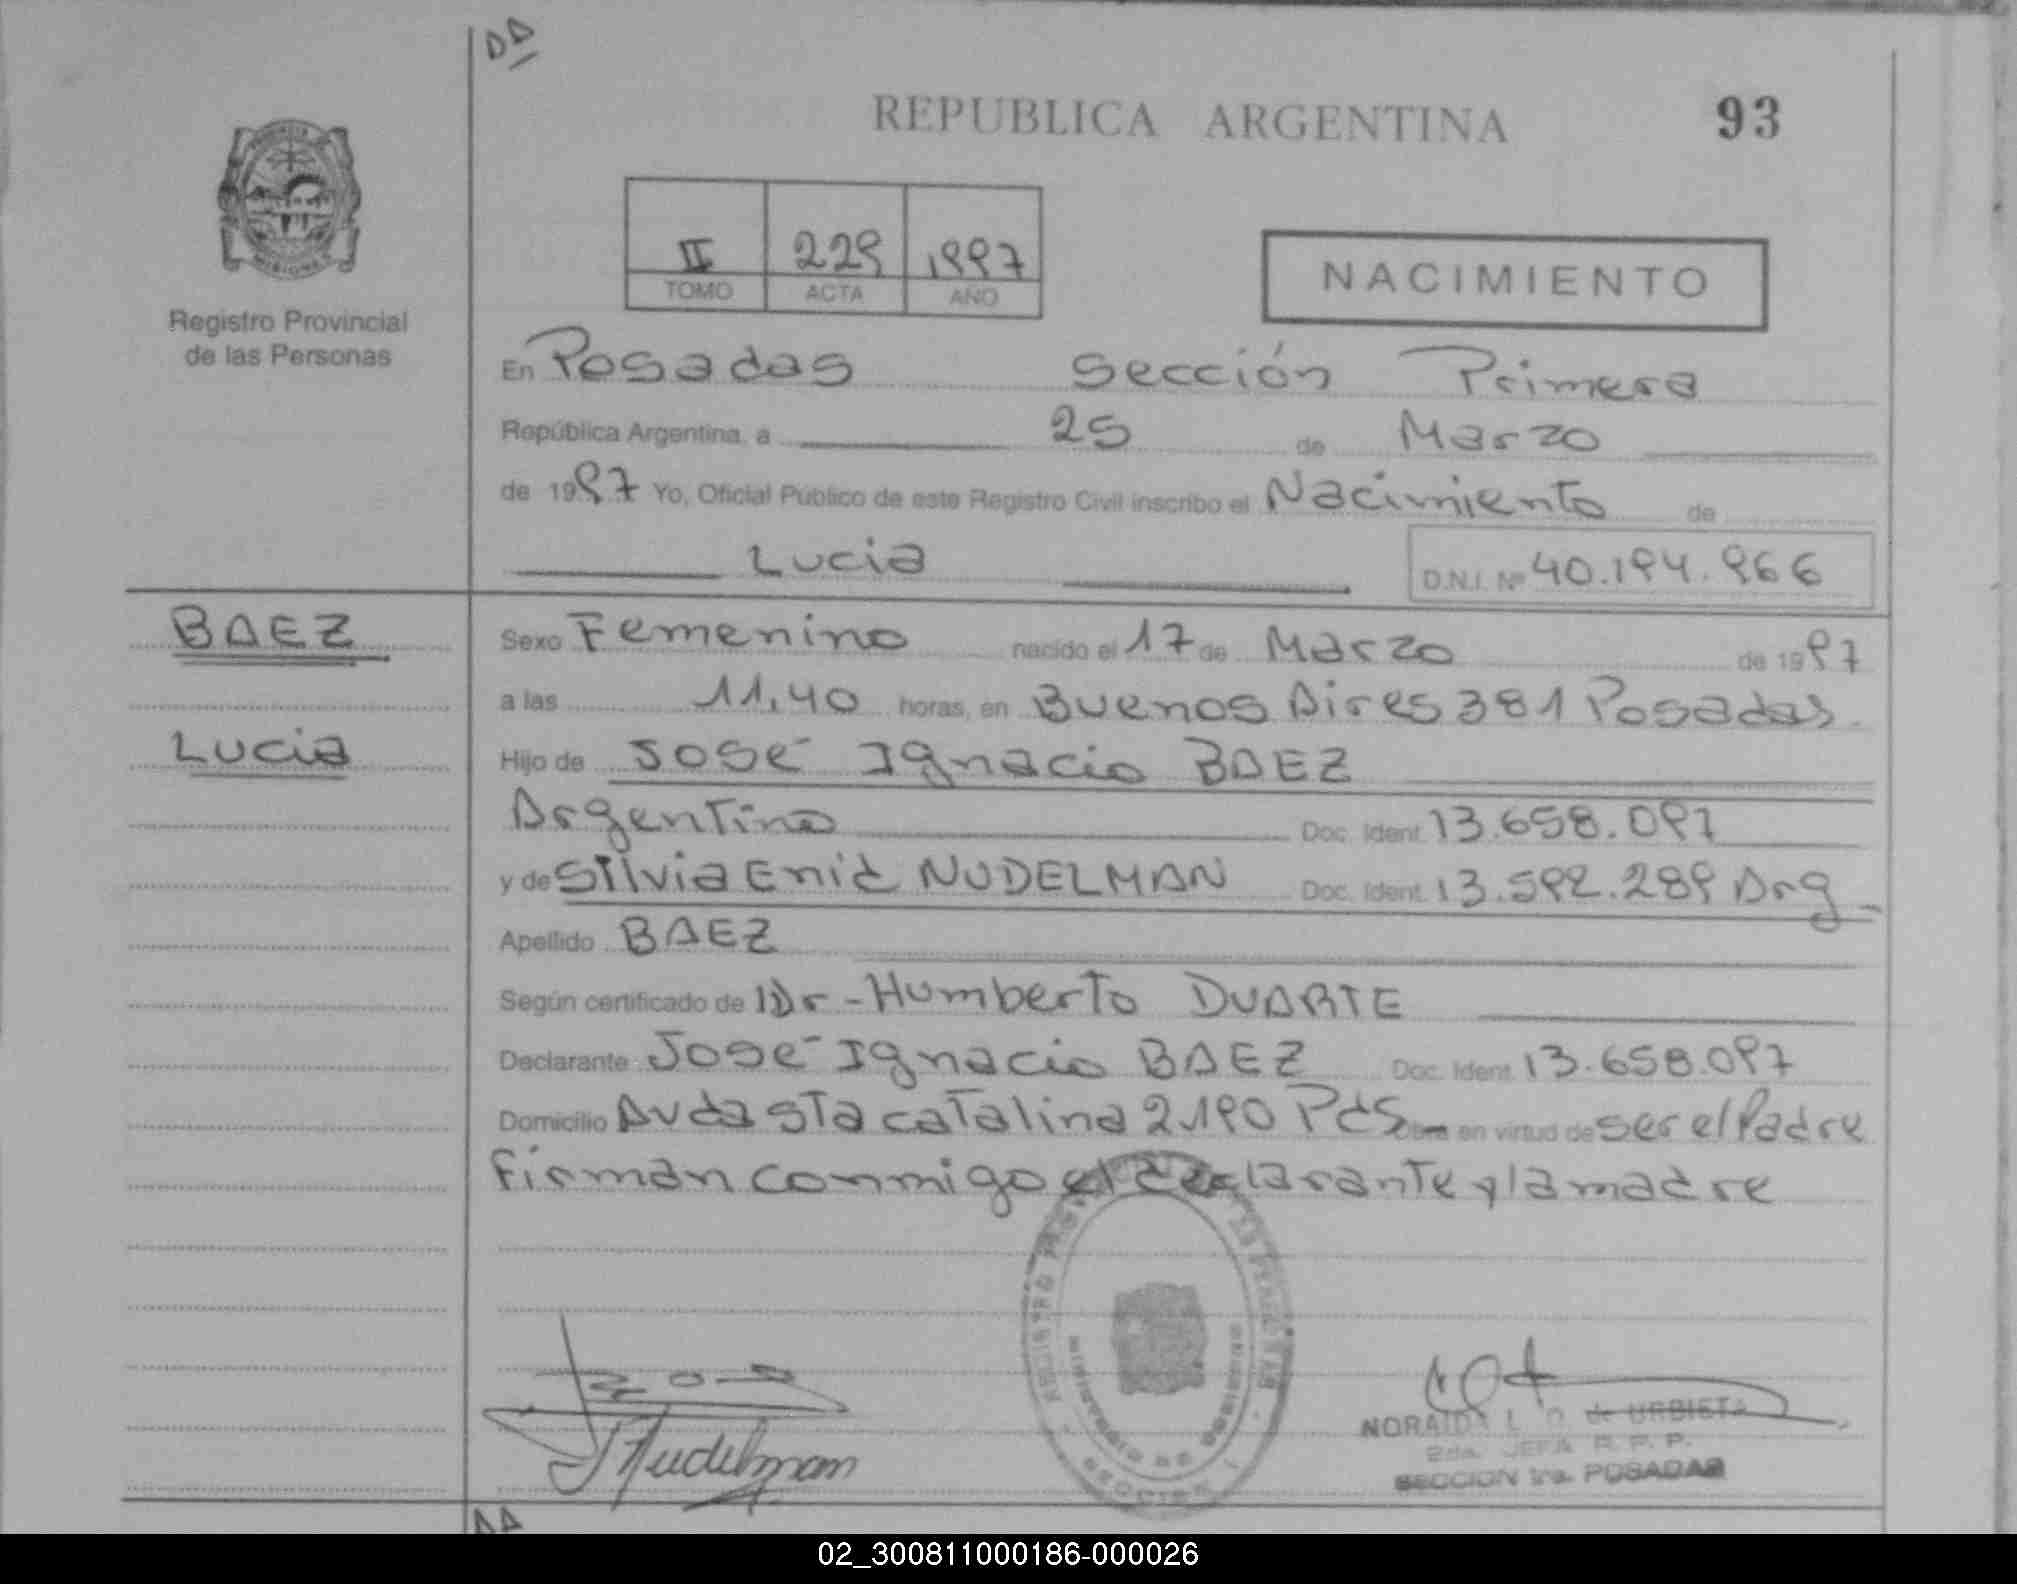 DD
REPUBLICA ARGENTINA
93
MISIONES
Registro Provincial
de las Personas
II 229 1997
TOMO ACTA AÑO
NACIMIENTO
En Posadas Sección Primera
República Argentina, a 25 de Marzo
de 1997 Yo, Oficial Público de este Registro Civil inscribo el Nacimiento de
Lucia D.N.I. Nº 40.194.966
BAEZ
Lucia
Sexo Femenino nacido el 17 de Marzo de 1997
a las 11,40 horas, en Buenos Aires 381 Posadas.
Hijo de José Ignacio BAEZ
Argentino Doc. Ident. 13.658.097
y de Silvia Enid NUDELMAN Doc. Ident. 13.592.289 Arg
Apellido BAEZ
Según certificado de Dr - Humberto DUARTE
Declarante José Ignacio BAEZ Doc. Ident. 13.658.097
Domicilio Avda Sta Catalina 2190 Pds Obra en virtud de ser el Padre
Firman conmigo el declarante y la madre
Nudelman
NORAIDA L. de URBIETA
2da. JEFA R. P. P.
SECCION 1ra. POSADAS
02_300811000186-000026